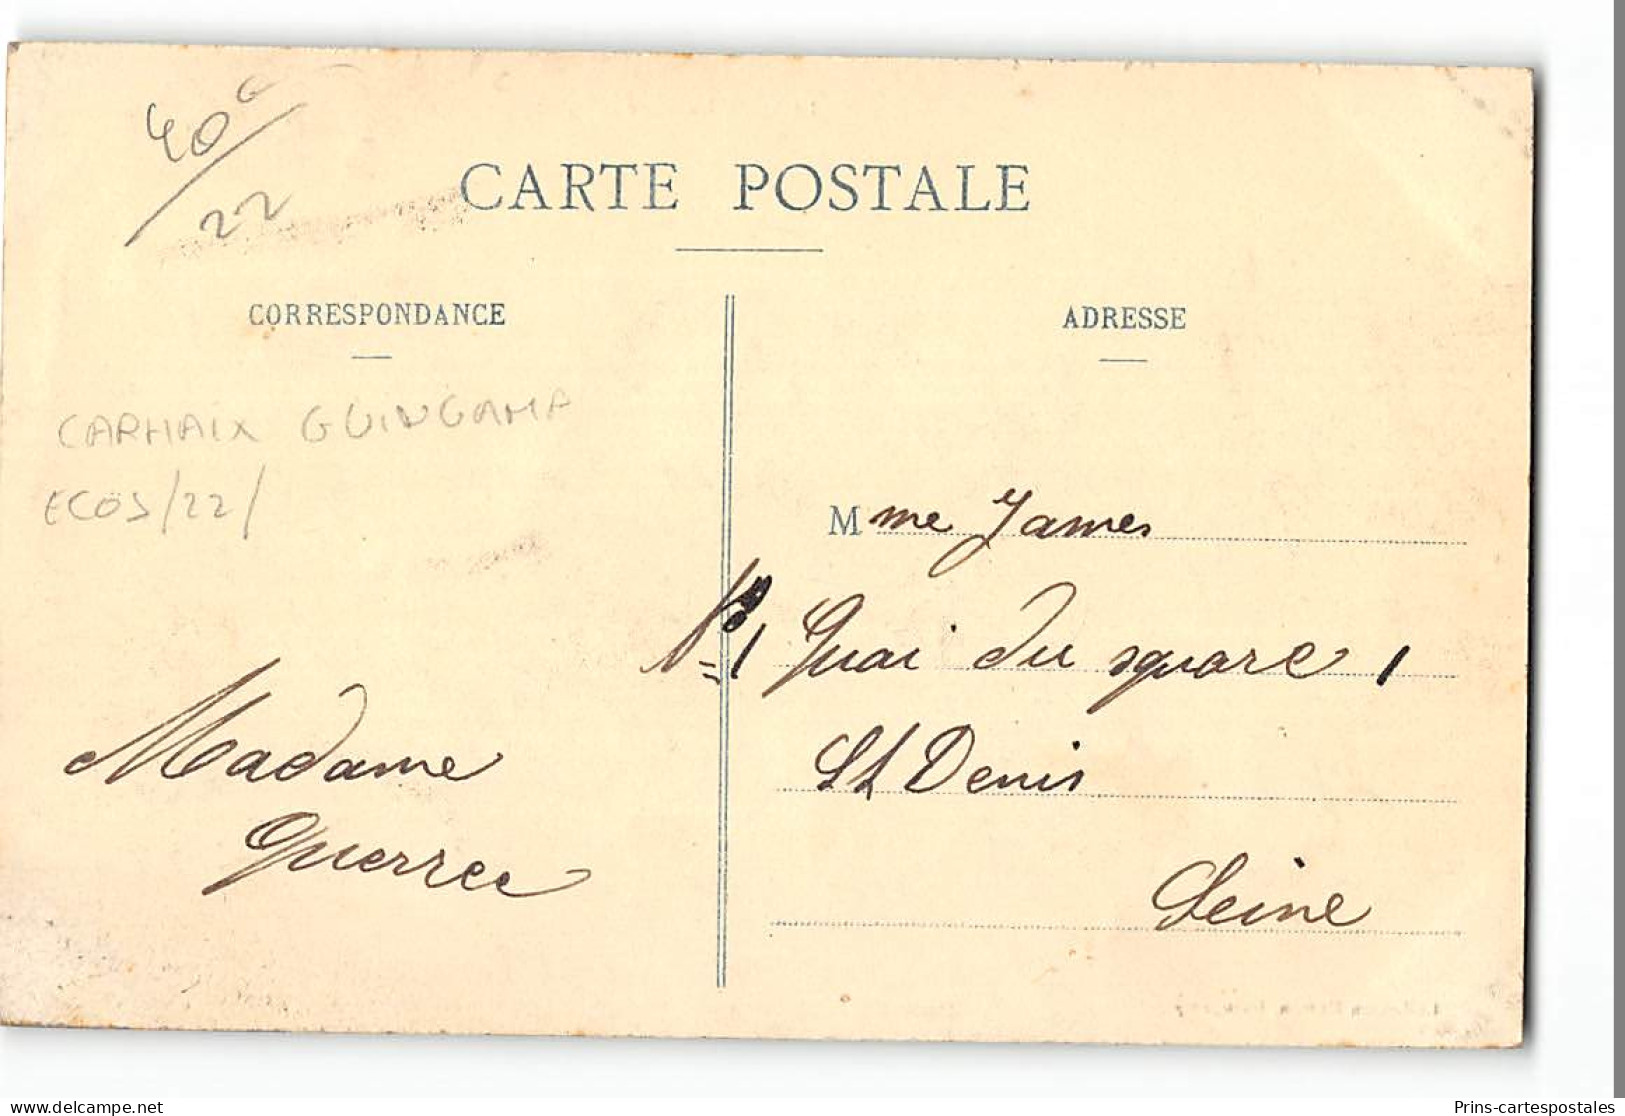 40 G
22
CARTE POSTALE
CORRESPONDANCE
ADRESSE
CARHAIX GUINGAMP
22
Mme James
No 1 Quai du square 1
St Denis
Seine
Madame
Guerree
delcampe.net
Prins-cartespostales